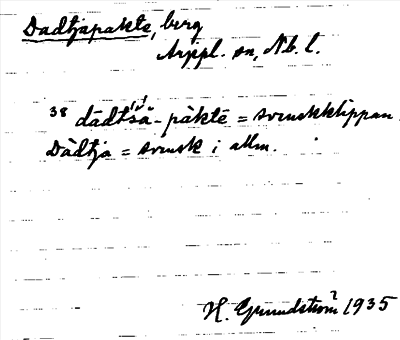 Dadtjapakte, berg
Arppl. sn, Nb. l.
38 dādt'śä-päktē = svenskklippan.
Dàdtja = svensk i allm.
H. Grundström 1935